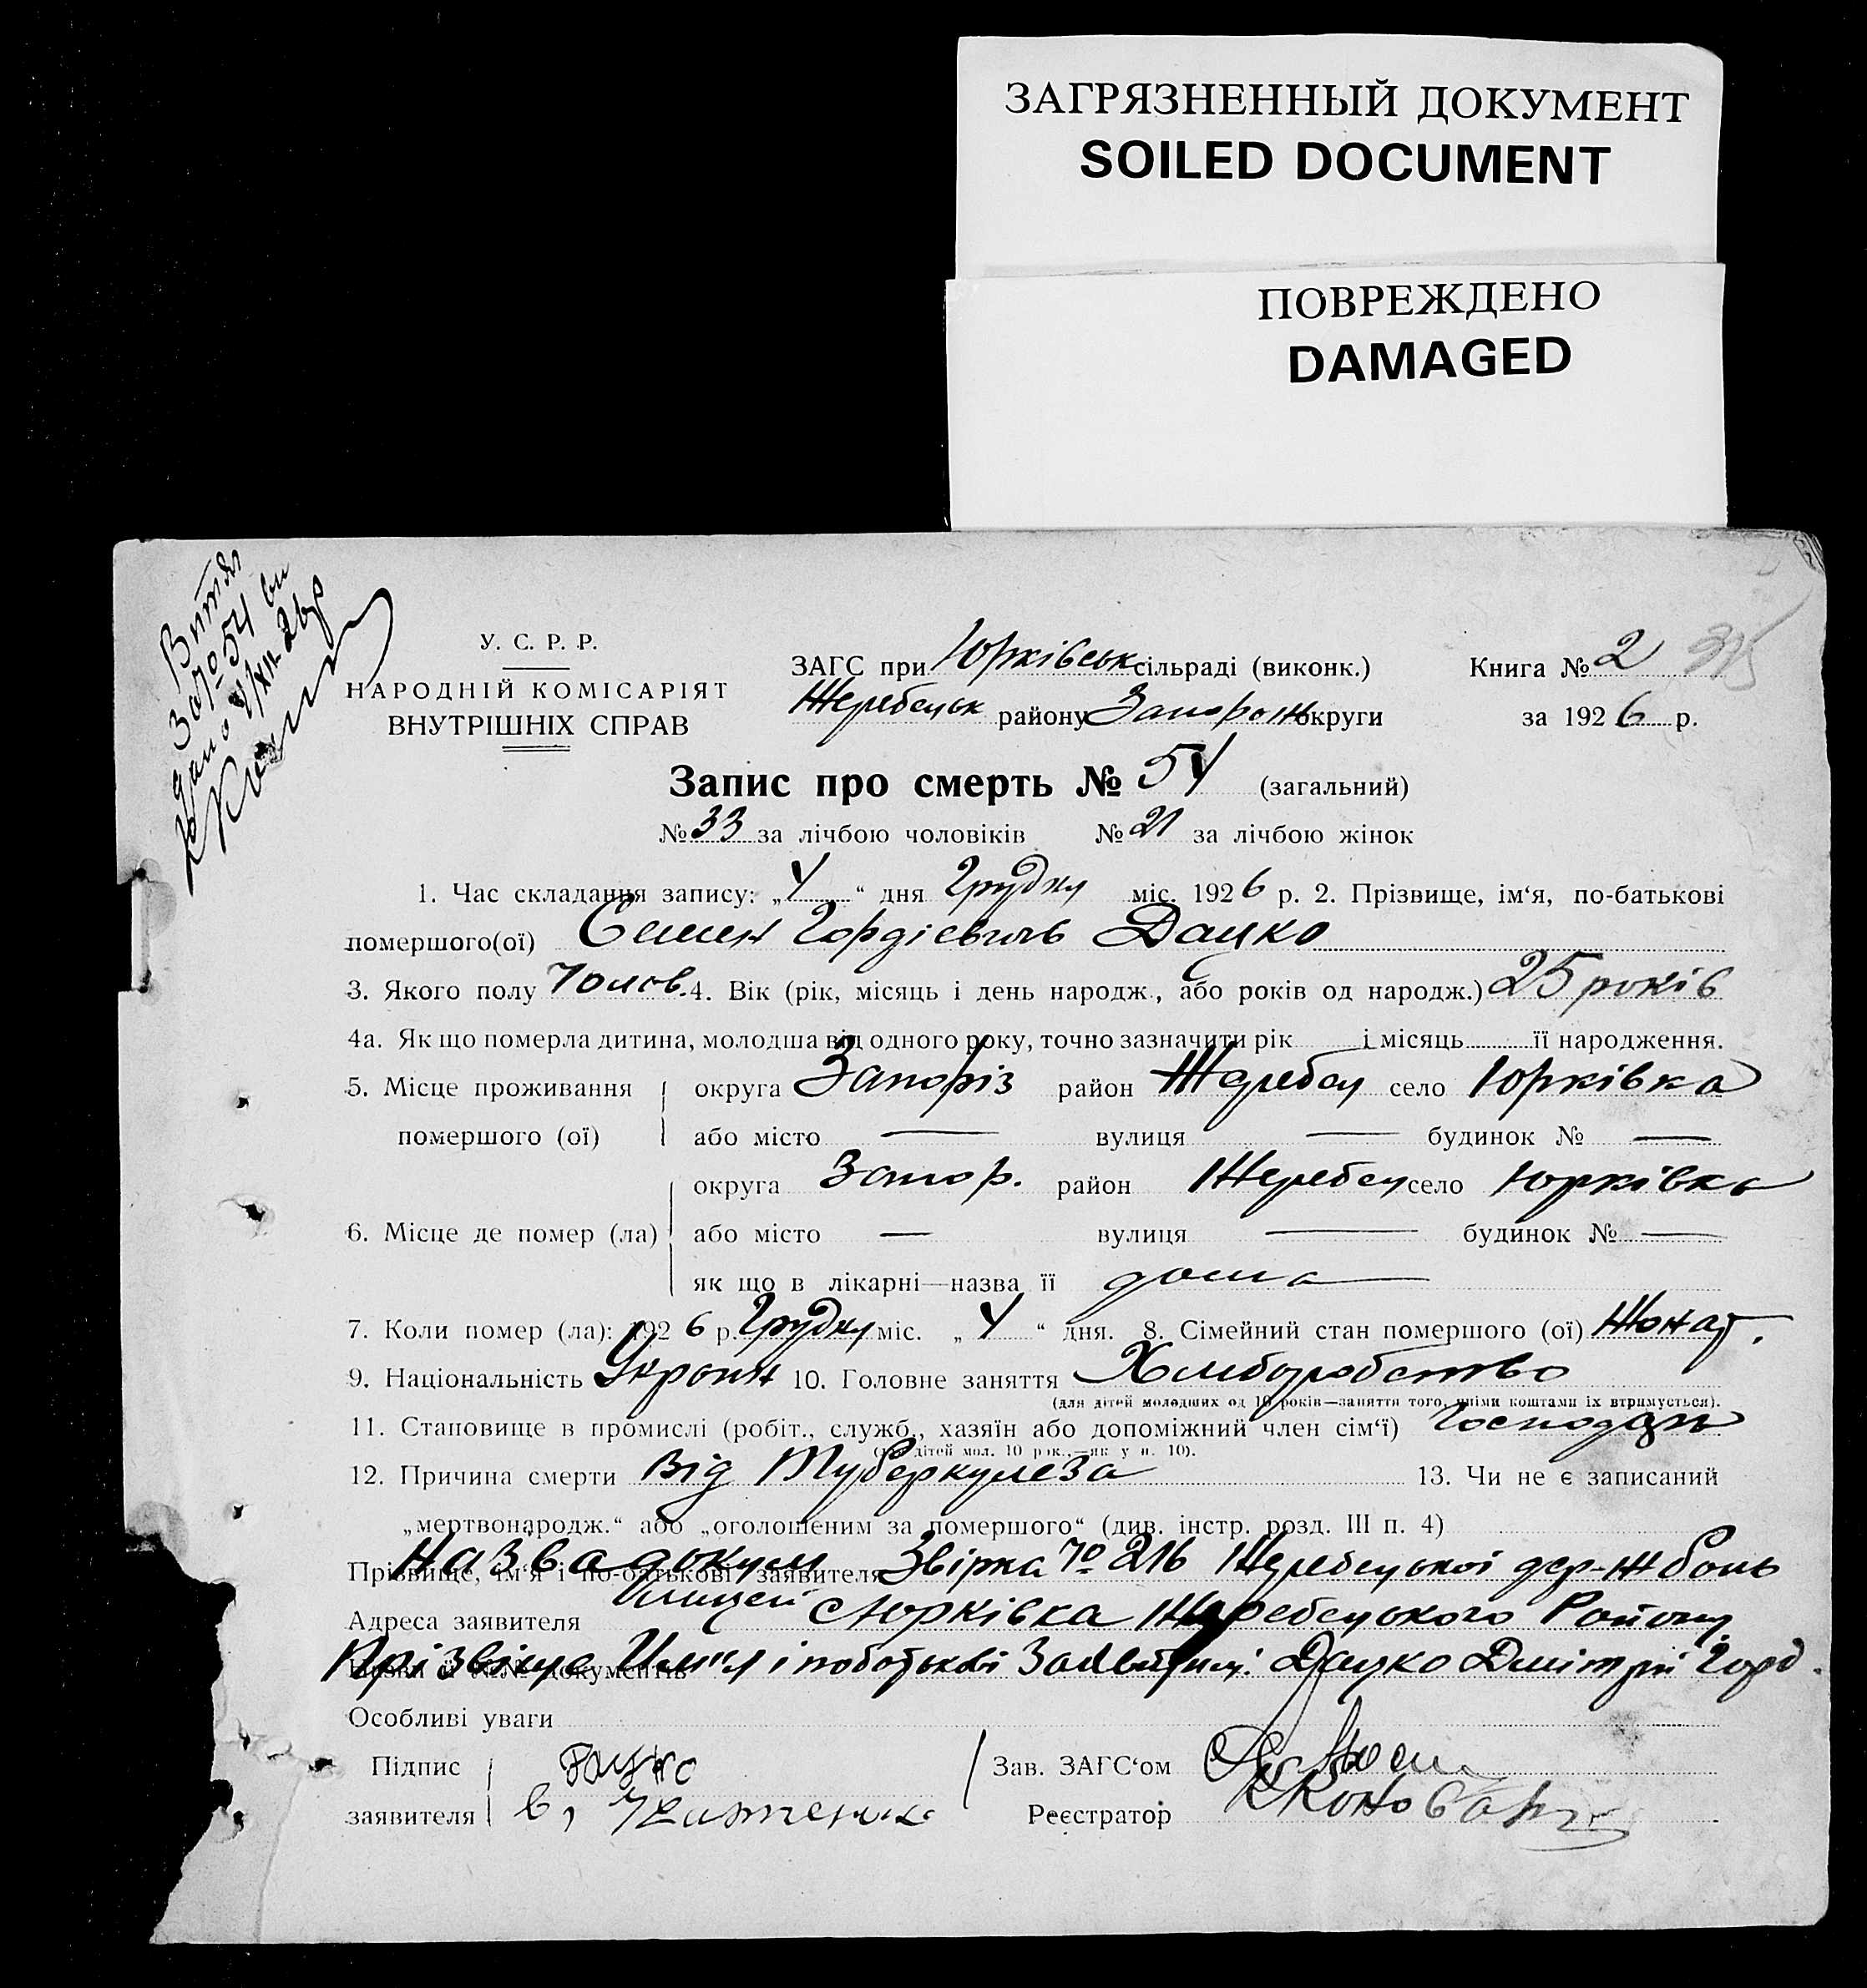 ЗАГРЯЗНЕННЫЙ ДОКУМЕНТ
SOILED DOCUMENT
ПОВРЕЖДЕНО
DAMAGED
Витяг
за № 54
У. С. Р. Р.
НАРОДНІЙ КОМІСАРІЯТ
ВНУТРІШНІХ СПРАВ
ЗАГС при Юрківськ сільраді (виконк.)
Жеребецьк району Запорож округи
Книга № 2
за 1926 р.
Запис про смерть № 54 (загальний)
№ 33 за лічбою чоловіків № 21 за лічбою жінок
1. Час складання запису: „4“ дня Грудня міс. 1926 р. 2. Прізвище, ім‘я, по-батькові
помершого(ої) Семен Гордієвичь Дацко
3. Якого полу Чолов. 4. Вік (рік, місяць і день народж., або років од народж.) 25 років
4а. Як що померла дитина, молодша від одного року, точно зазначити рік і місяць її народження.
5. Місце проживання помершого (ої) округа Запоріз район Жеребец село Юрківка
або місто — вулиця — будинок № —
6. Місце де помер (ла) округа Запор. район Жеребец село Юрківка
або місто — вулиця — будинок № —
як що в лікарні—назва її дома
7. Коли помер (ла): 1926 р. Грудня міс. „4“ дня. 8. Сімейний стан помершого (ої) Жонат.
9. Національність Україн 10. Головне заняття Хлиборобство
(для дітей молодших од 10 років—заняття того, чиїми коштами їх втримується).
11. Становище в промислі (робіт., служб., хазяїн або допоміжний член сім‘ї) Господарь
(для дітей мол. 10 рок.,—як у п. 10).
12. Причина смерти Від Туберкулеза 13. Чи не є записаний
„мертвонародж.“ або „оголошеним за помершого“ (див. інстр. розд. III п. 4)
Прізвище, ім‘я і по-батькові заявителя Назва докум Звірка № 216 Жеребецької
Адреса заявителя с Юрківка Жеребецького Району
Назва й №№ документів Прізвіще Имья і побатькові Заявителя: Дацко Дмітрій Горд.
Особливі уваги
Підпис заявителя Дацко
Зав. ЗАГС‘ом
Реєстратор Коновал